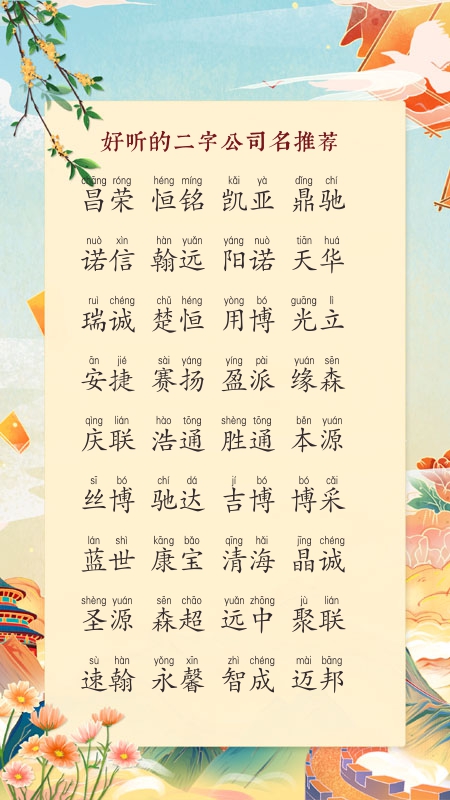 好听的二字公司名推荐
chāng róng héng míng kǎi yà dǐng chí
昌荣 恒铭 凯亚 鼎驰
nuò xìn hàn yuǎn yáng nuò tiān huá
诺信 翰远 阳诺 天华
ruì chéng chǔ héng yòng bó guāng lì
瑞诚 楚恒 用博 光立
ān jié sài yáng yíng pài yuán sēn
安捷 赛扬 盈派 缘森
qìng lián hào tōng shèng tōng běn yuán
庆联 浩通 胜通 本源
sī bó chí dá jí bó bó cǎi
丝博 驰达 吉博 博采
lán shì kāng bǎo qīng hǎi jīng chéng
蓝世 康宝 清海 晶诚
shèng yuán sēn chāo yuǎn zhōng jù lián
圣源 森超 远中 聚联
sù hàn yǒng xīn zhì chéng mài bāng
速翰 永馨 智成 迈邦